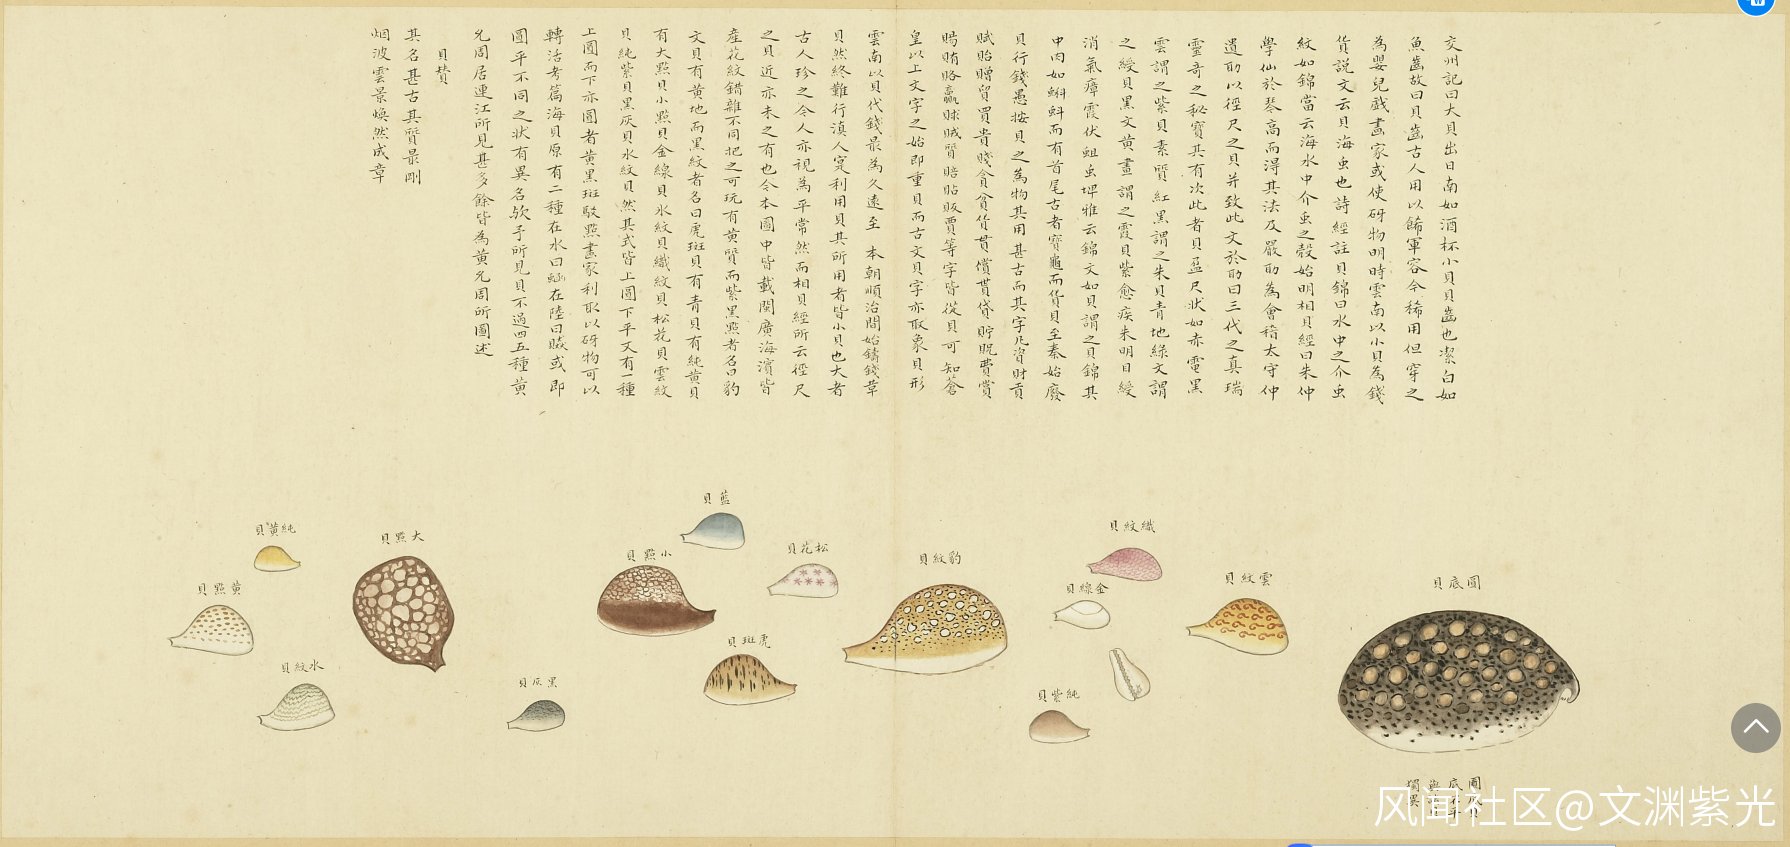 交州記曰大貝出日南如酒杯小貝貝齒也潔白如
魚齒故曰貝齒古人用以飾軍容今稀用但穿之
為嬰兒戲畫家或使砑物明時雲南以小貝為錢
貨説文云貝海虫也詩經註貝錦曰水中之介虫
紋如錦當云海水中介虫之殼始明相貝經曰朱仲
學仙於琴高而得其法及嚴助為會稽太守仲
遺助以徑尺之貝并致此文於助曰三代之真瑞
靈奇之秘寶其有次此者貝盈尺狀如赤電黑
雲謂之紫貝素質紅黑謂之朱貝青地綠文謂
之綬貝黑文黃畫謂之霞貝紫愈疾朱明目綬
消氣瘴霞伏蛆虫埤雅云錦文如貝謂之貝錦其
中肉如蝌蚪而有首尾古者寶龜而貨貝至秦始廢
貝行錢愚按貝之為物其用甚古而其字凡資財貢
賦貽贈貿買貴賤貪貧貨貫償貰貸貯貺費賞
賜賄賂贏賕賊質賠貼販賈等字皆從貝可知蒼
皇以上文字之始即重貝而古文貝字亦取象貝形
雲南以貝代錢最為久遠至 本朝順治間始鑄錢革
貝然終難行滇人寔利用貝其所用者皆小貝也大者
古人珍之今人亦視為平常然而相貝經所云徑尺
之貝近亦未之有也今本圖中皆載閩廣海濱皆
產花紋錯雜不同把之可玩有黃質而紫黑點者名曰豹
文貝有黃地而黑紋者名曰虎斑貝有青貝有純黃貝
有大點貝小點貝金線貝水紋貝織紋貝松花貝雲紋
貝純紫貝黑灰貝水紋貝然其式皆上圓下平又有一種
上圓而下亦圓者黃黑斑駁點畫家利取以砑物可以
轉活考篇海貝原有二種在水曰蜬在陸曰贆或即
圓平不同之狀有異名欤予所見貝不過四五種黃
允周居連江所見甚多餘皆為黃允周所圖述
貝贊
其名甚古其質最剛
烟波雲景煥然成章
圓底貝
雲紋貝
織紋貝
金線貝
純紫貝
豹紋貝
松花貝
藍貝
虎斑貝
小點貝
黑灰貝
大點貝
純黃貝
黃點貝
水紋貝
风闻社区@文渊紫光